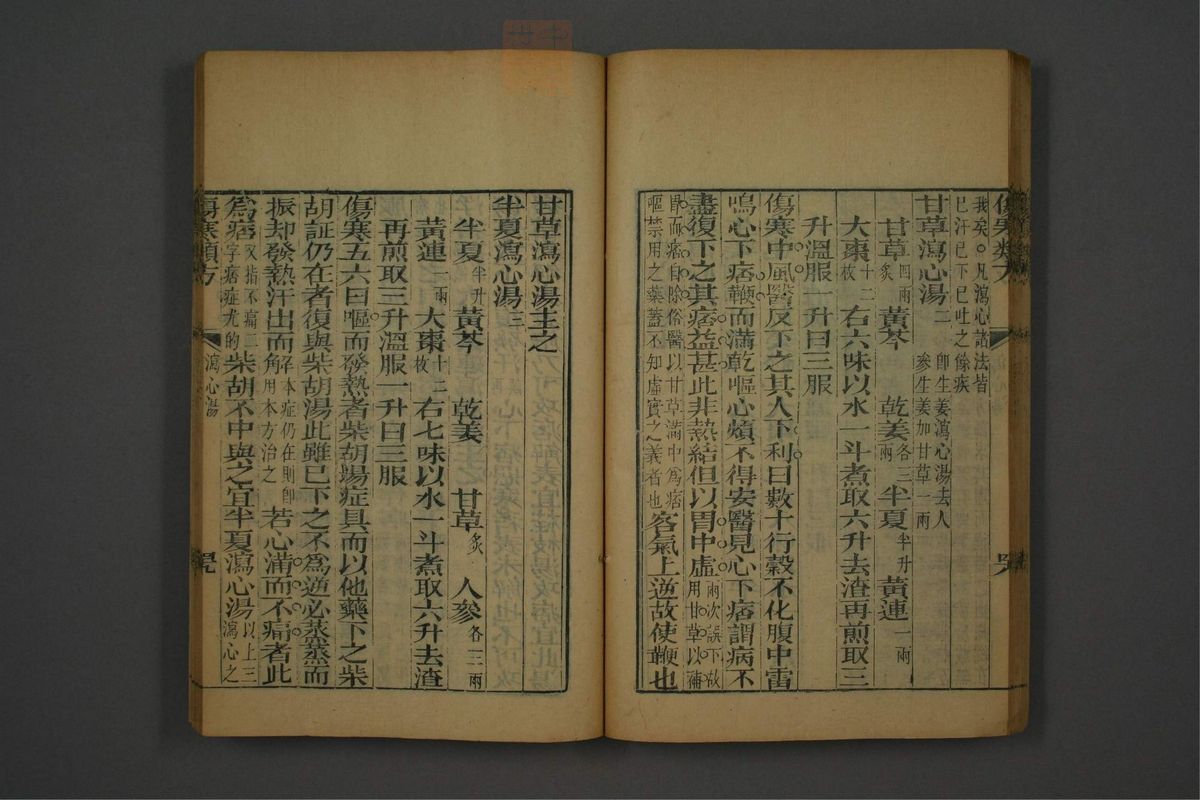 傷寒類方
我矣。凡瀉心諸法皆
已汗已下已吐之餘疾
甘草瀉心湯二
卽生姜瀉心湯去人
參生姜加甘草一兩
甘草四兩炙 黃芩 乾姜各三兩 半夏半升 黃連一兩
大棗十二枚 右六味以水一斗煮取六升去渣再煎取三
升溫服一升日三服
傷寒中風醫反下之其人下利日數十行穀不化腹中雷
鳴心下痞鞕而滿乾嘔心煩不得安醫見心下痞謂病不
盡復下之其痞益甚此非熱結但以胃中虛兩次誤下故用甘草以補
胃而痞自除俗醫以甘草滿中爲痞
嘔禁用之藥蓋不知虛實之義者也客氣上逆故使鞕也
甘草瀉心湯主之
半夏瀉心湯三
半夏半升 黃芩 乾姜 甘草炙 人參各三兩
黃連一兩 大棗十二枚 右七味以水一斗煮取六升去渣
再煎取三升溫服一升日三服
傷寒五六日嘔而發熱者柴胡湯症具而以他藥下之柴
胡証仍在者復與柴胡湯此雖已下之不爲逆必蒸蒸而
振却發熱汗出而解本症仍在則卽用本方治之若心滿而不痛者此
爲痞又指不痛二字痞症尤的柴胡不中與之宜半夏瀉心湯以上三瀉心之
傷寒類方
瀉心湯